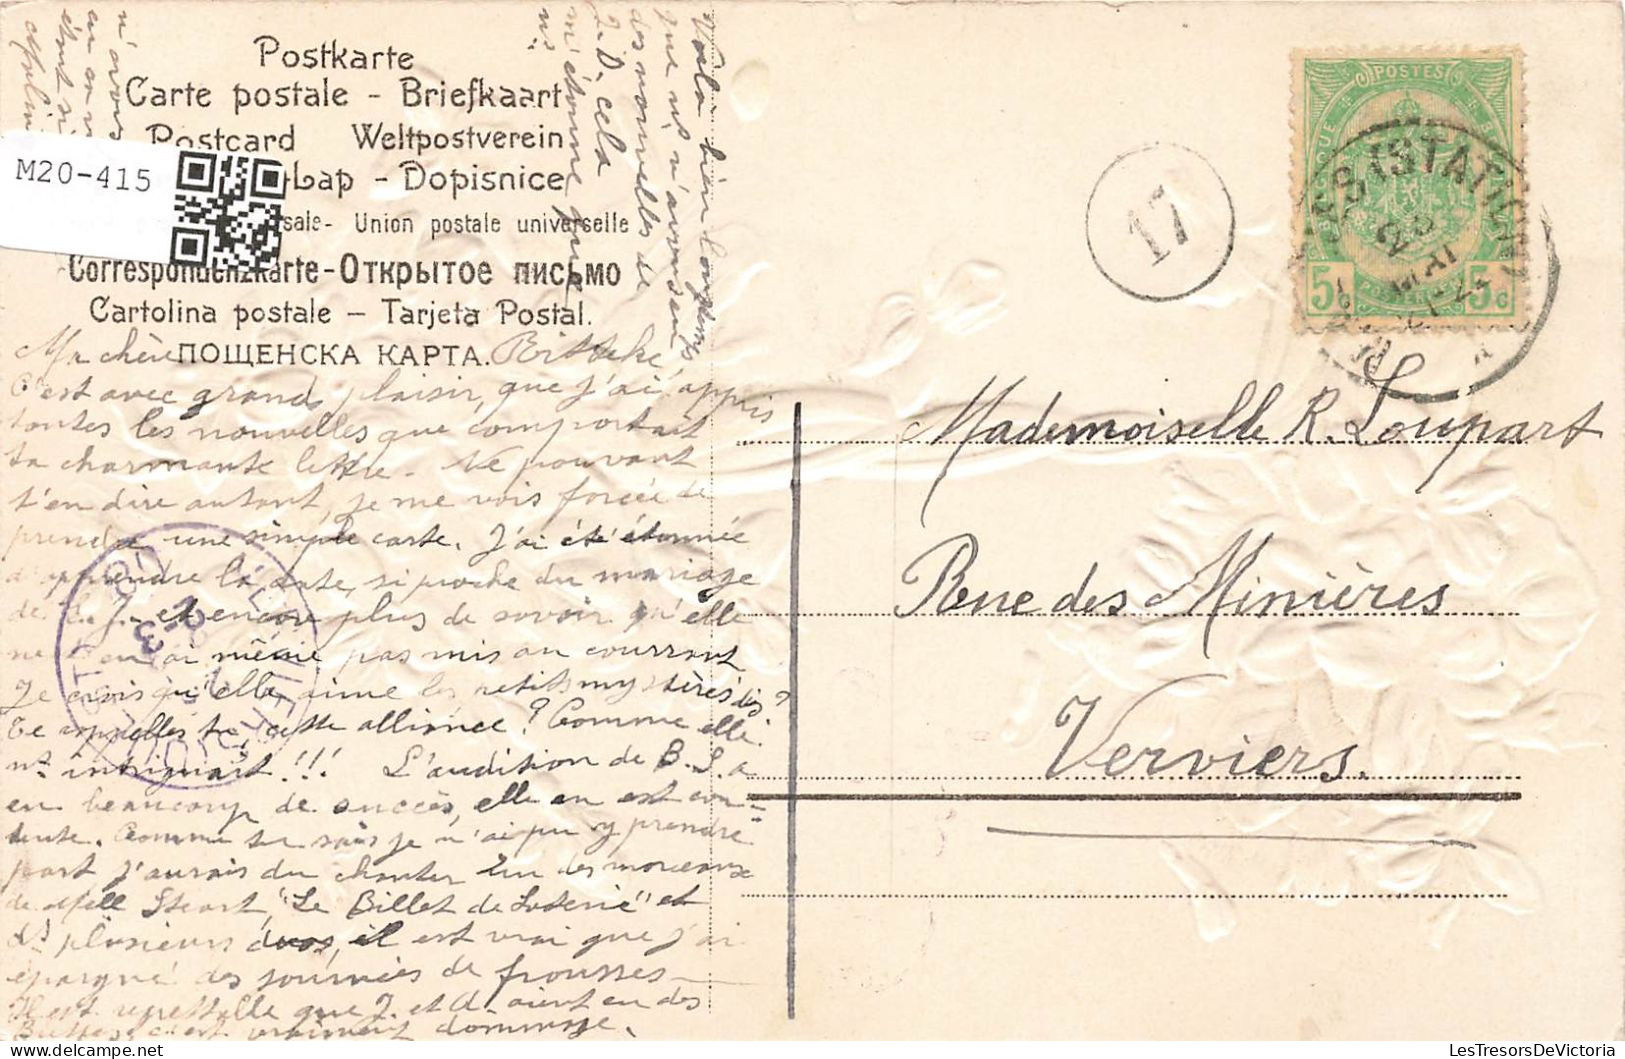 Postkarte
Carte postale - Briefkaart
Postcard Weltpostverein
-Lap - Dopisnice
sale- Union postale universelle
Correspondenzkarte-Открытое письмо
Cartolina postale – Tarjeta Postal.
ПОЩЕНСКА КАРТА.
M20-415
Voilà bien longtemps
que ns n'avons eu
des nouvelles de
J.D. cela
m'étonne
n'avons
Ma chère
C'est avec grand plaisir, que j'ai appris
toutes les nouvelles que comportait
ta charmante lettre. Ne pouvant
t'en dire autant, je me vois forcée de
prendre une simple carte. J'ai été étonnée
d'apprendre la date, si proche du mariage
de B.J. et encore plus de savoir qu'elle
ne t'en ai même pas mis au courrant
Je crois qu'elle aime les petits mystères dis?
Te rappelles tu, cette alliance? Comme elle
ns intriguait!!! L'audition de B.S. a
eu beaucoup de succès, elle en est con-
tente. Comme tu sais je n'ai pu y prendre
part j'aurais du chanter un des morceaux
de Mell "Le Billet de Loterie" et
ds plusieurs duos, il est vrai que j'ai
épargné des journées de frousses
Il est que J. et A. aient eu des
c'est vraiment dommage.
17
POSTES
5c 5c
Mademoiselle R. Loupart
Rue des Minières
Verviers.
LesTresorsDeVictoria